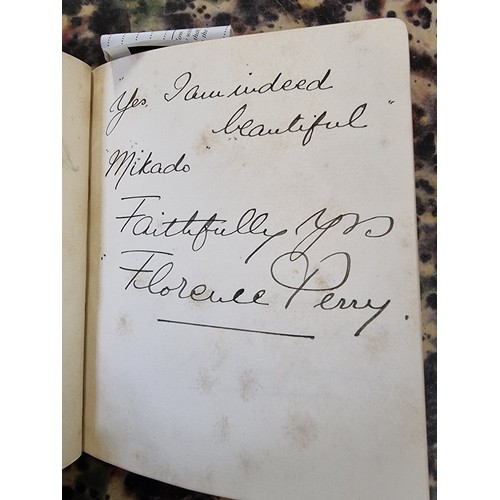 "Yes, I am indeed
beautiful"
"Mikado"
Faithfully Yrs
Florence Perry.